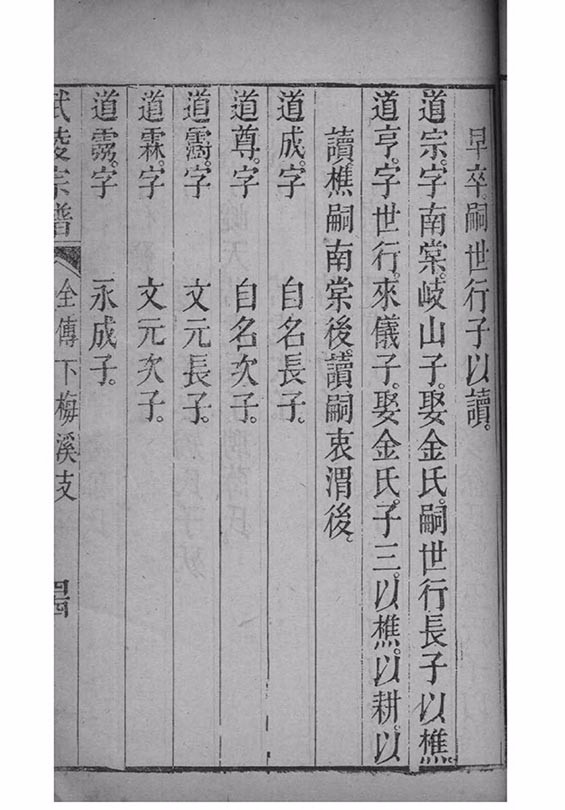 早卒。嗣世行子以讀。
道宗。字南棠。岐山子。娶金氏。嗣世行長子以樵。
道亨。字世行。來儀子。娶金氏。子三。以樵。以耕。以
讀。樵嗣南棠後。讀嗣衷渭後。
道成。字　自名長子。
道尊。字　自名次子。
道霱。字　文元長子。
道霖。字　文元次子。
道霧。字　永成子。
武陵宗譜　全傳下梅溪支